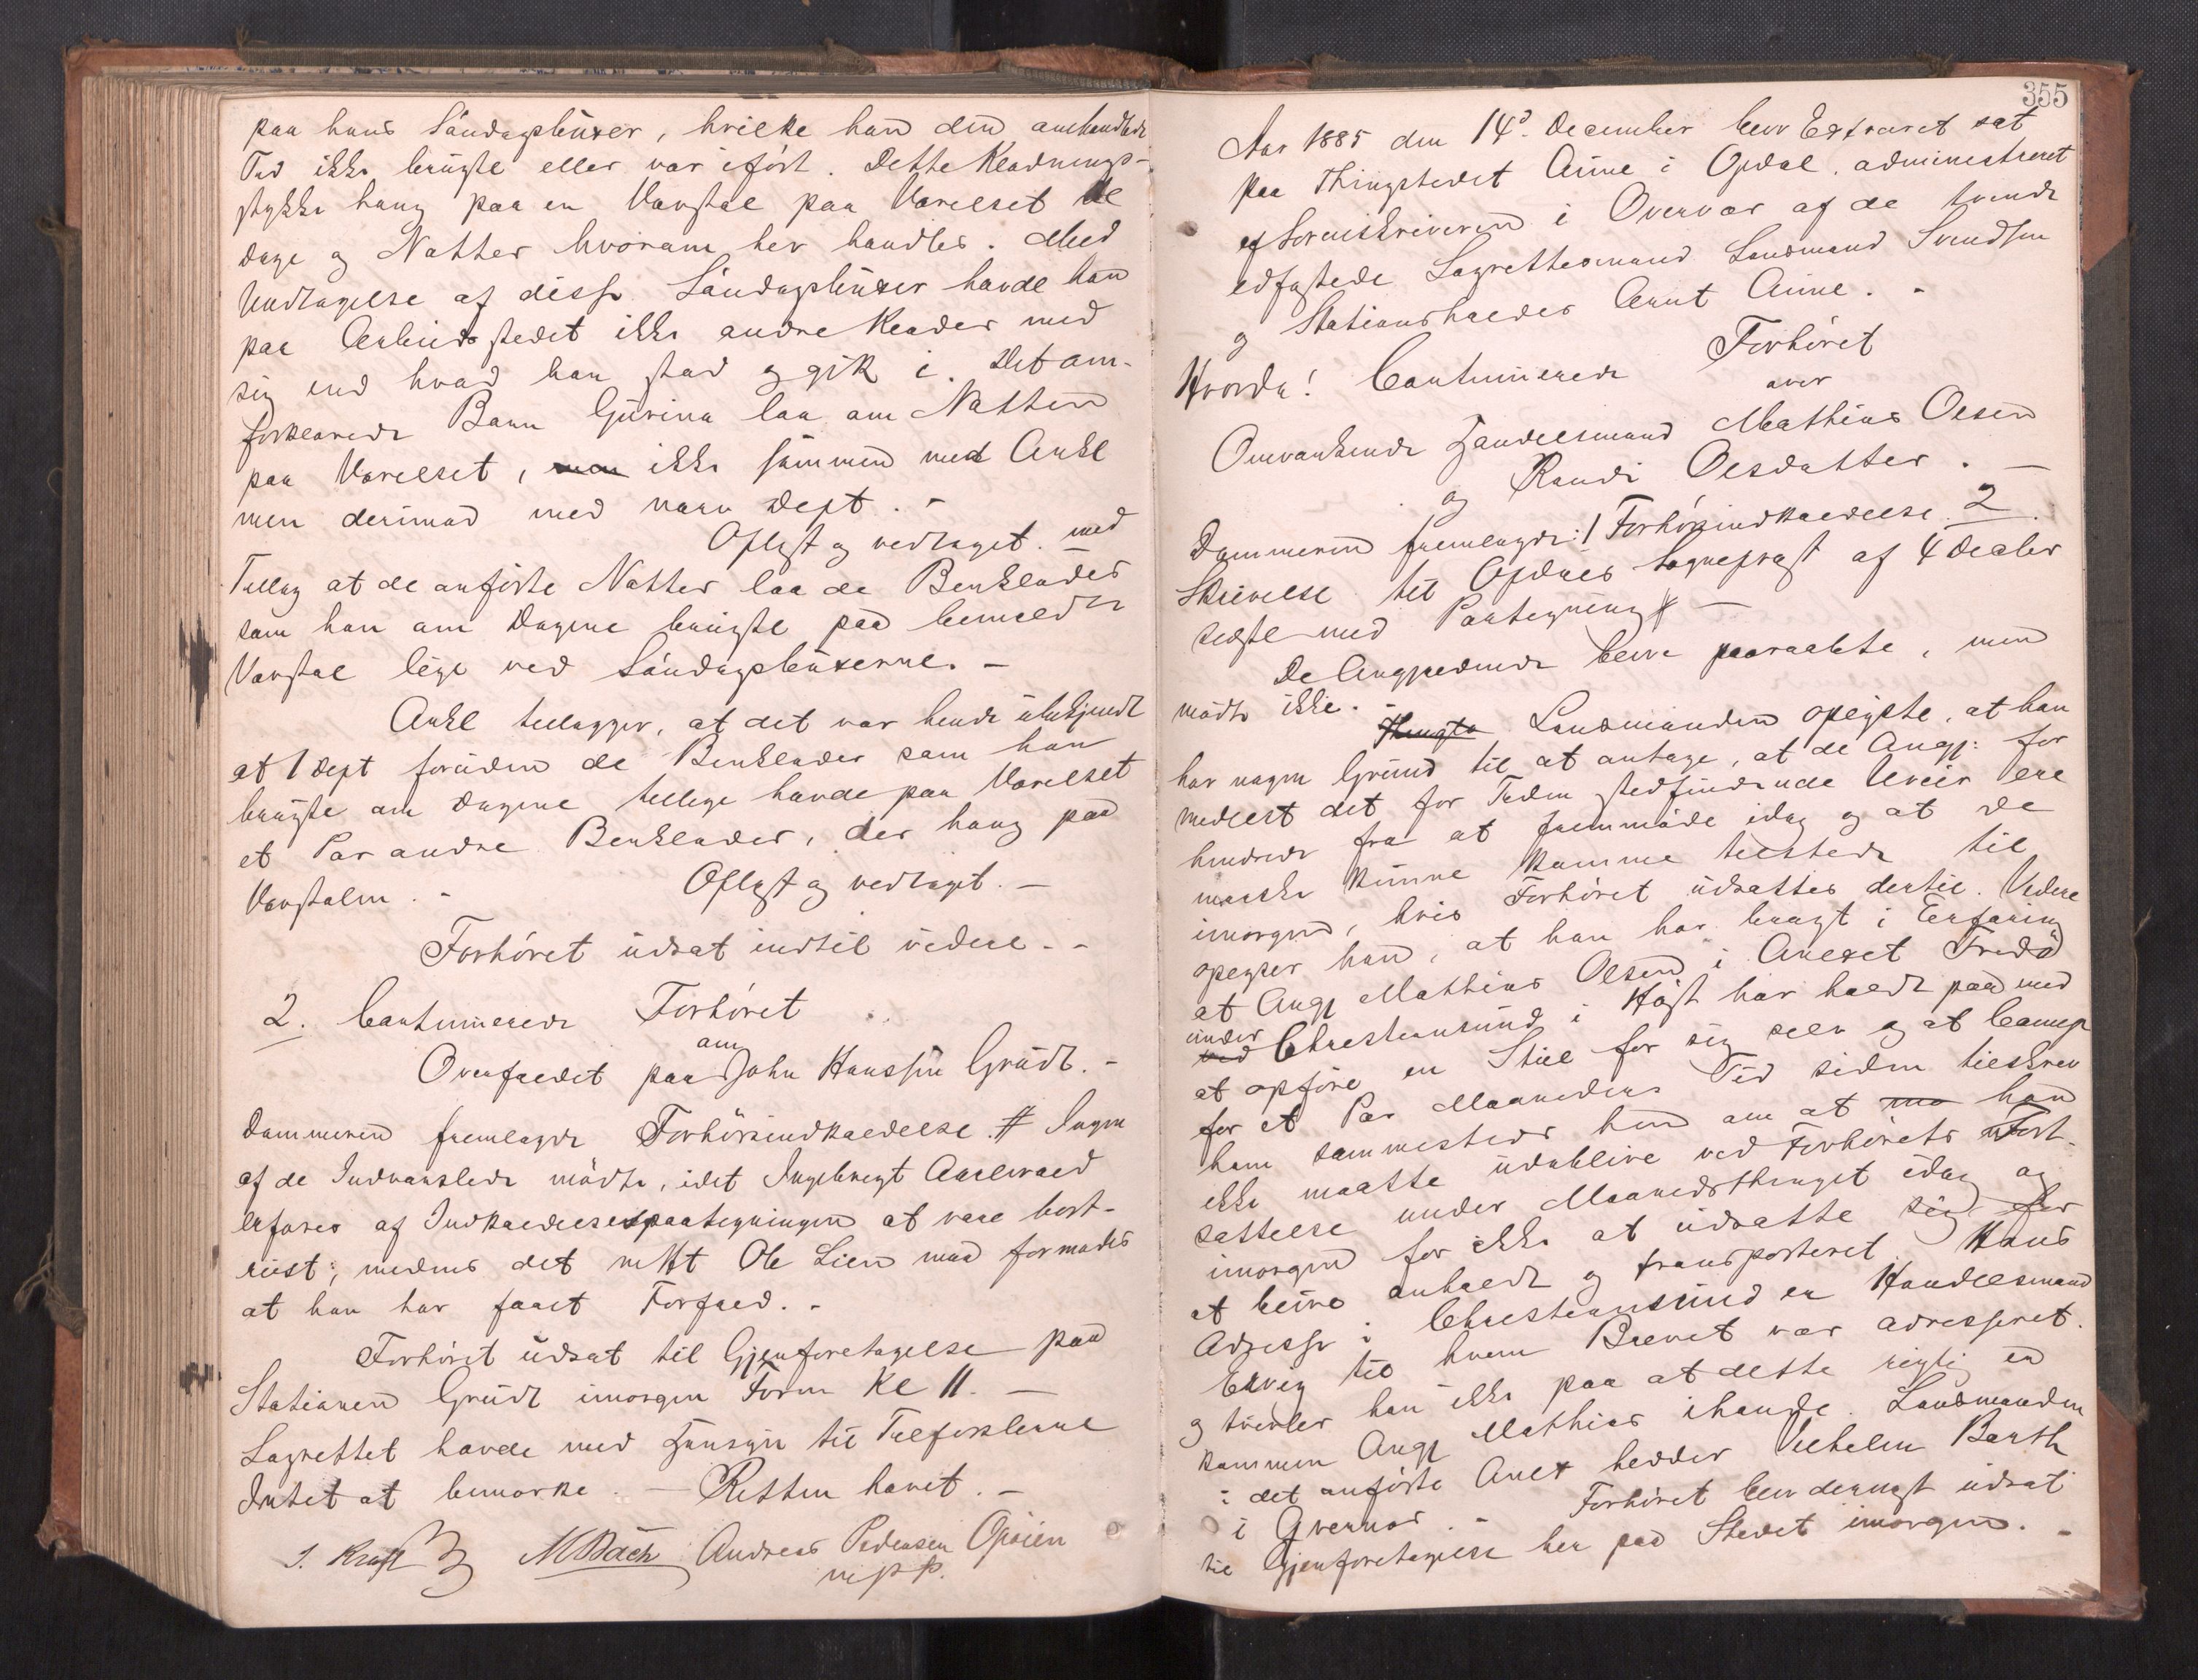 paa hans Søndagsbuxer, hvilke han den omhandlede
Tid ikke brugte eller var iført. Dette Klædnings-
stykke hang paa en Vævstol paa Værelset de
Dage og Nætter hvorom her handles. Med
Undtagelse af disse Søndagsbuxer havde han
paa Arbeidsstedet ikke andre Klæder med
sig end hvad han stod og gik i. Det om-
forklarede Barn Gurina laa om Natten
paa Værelset, men ikke sammen med Ankl
men derimod med nærv Dept. -
Oplæst og vedtaget. med
Tillæg at de anførte Nætter laa de Benklæder
som han om Dagene brugte paa bemeldte
Vævstol lige ved Søndagsbuxerne. -
Ankl tillægger, at det var hende ubekjendt
at 1 Dept foruden de Benklæder som han
brugte om Dagene tillige havde paa Værelset
et Par andre Benklæder, der hang paa
Vævstolen. - Oplæst og vedtaget. -
Forhøret udsat indtil videre. -
2. Continuerede Forhøret
om
Overfaldet paa John Hansen Grut. -
Dommeren fremlagde Forhørsindkaldelse # Ingen
af de Indvarslede mødte, idet Ingebregt Aalervold
erfares af Indkaldelsespaategningen at være bort-
reist; medens det med Ole Lien maa formodes
at han har faaet Forfald. -
Forhøret udsat til Gjenforetagelse paa
Stationen Grut imorgen Form Kl 11. -
Lagrettet havde med Hensyn til Tilførslerne
Intet at bemærke. - Retten hævet. -
J. Kraft M Bach Andreas Pedersen Opøien
m p p.
355
Aar 1885 den 14d December blev Extraret sat
paa Thingstedet Aune i Opdal, administreret
af Sorenskriveren i Overvær af de tvende
edfæstede Lagrettesmænd Lensmand Svendsen
og Stationsholder Arnt Aune. -
Hvorda! Continuerede Forhøret
over
Omvankende Handelsmand Mathias Olsen
og Randi Olsdatter. -
Dommeren fremlagde: 1 Forhørsindkaldelse 2
Skrivelse til Opdals Sogneprest af 4 Decbr
sidstl med Paategning # -
De Angjældende bleve paaraabte, men
mødte ikke. -
Thingta Lensmanden oplyste, at han
har nogen Grund til at antage, at de Angj: for
medelst det for Tiden stedfindende Uveir ere
hindrede fra at fremmøde idag og at de
maaske kunne komme tilstede til
imorgen, hvis Forhøret udsattes dertil. Videre
oplyser han, at han har bragt i Erfaring
at Angj Mathias Olsen i Anexet Fredø
under
ved Christiansund i Høst har holdt paa med
at opføre en Stue for sig selv og at Lensm
for et Par Maaneders Tid siden tilskrev
ham sammesteds hen om at ma han
ikke maatte udeblive ved Forhørets Fort-
sættelse under Maanedsthinget idag og
imorgen for ikke at udsætte sig for
at blive anholdt og transporteret. Hans
Adresse i Christiansund er Handelsmand
Elvig til hvem Brevet var adresseret
og tvivler han ikke paa at dette rigtig er
kommen Angj Mathias ihænde. Lensmanden
i det anførte Anex hedder Vilhelm Barth
i Qvernæs. - Forhøret blev dernæst udsat
til Gjenforetagelse her paa Stedet imorgen. -